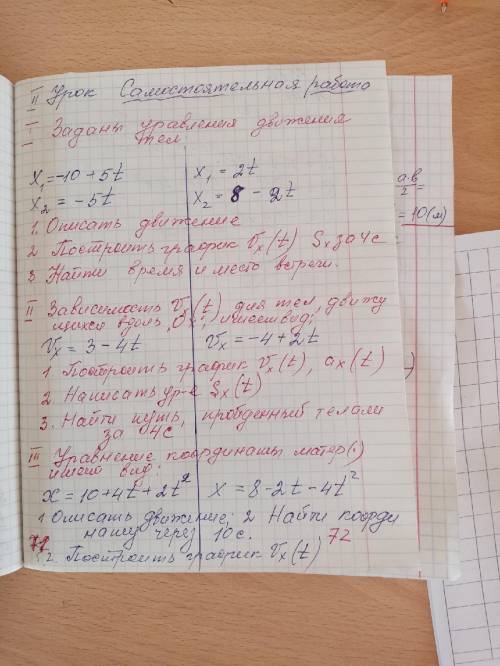 II Урок Самостоятельная работа
I Заданы уравнения движения
тел
x₁=-10+5t x₁ = 2t
x₂ = -5t x₂ = 8 - 2t
1. Описать движение
2 Построить график Vx(t) Sx за 4с
3. Найти время и место встречи.
II Зависимость Vx(t) для тел, движу
щихся вдоль Ox, имеет вид;
Vx = 3 - 4t Vx = -4 + 2t
1 Построить график Vx(t), ax(t)
2. Написать ур-е Sx(t)
3. Найти путь, пройденный телами
за 04с
III Уравнение координаты матер(·)
имеет вид:
x = 10+4t+2t² x = 8-2t-4t²
1 Описать движение; 2 Найти коорди
нату через 10с.
71 72
2. Построить график Vx(t)
a·в
2 =
= 10(м)